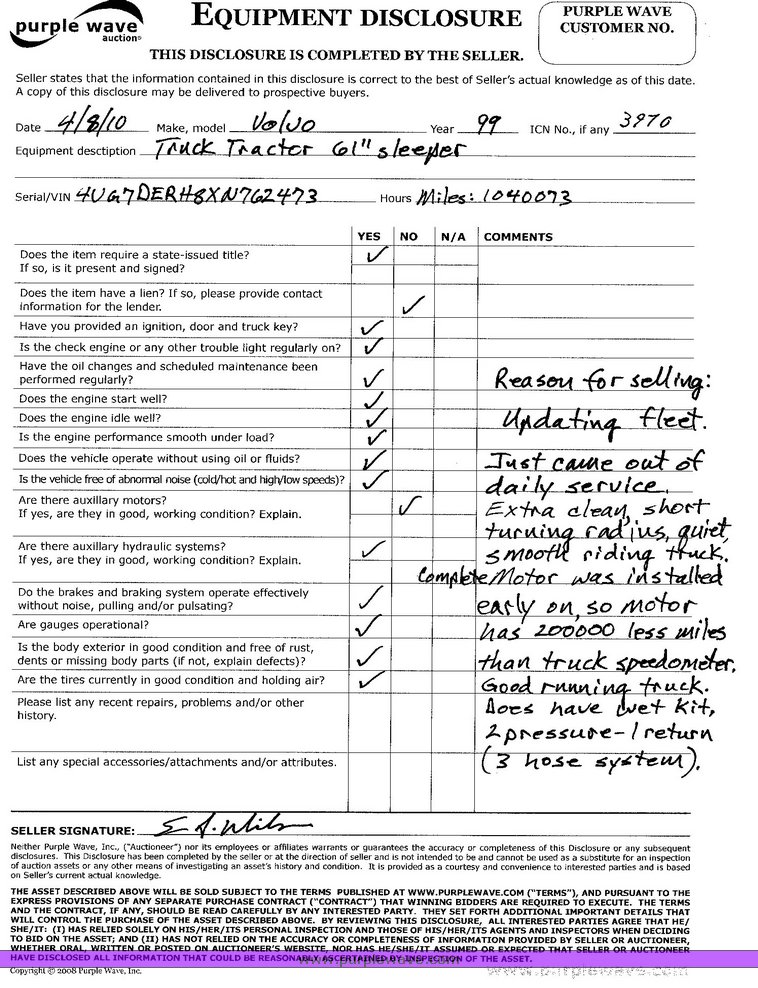 purple wave
auction®
EQUIPMENT DISCLOSURE
PURPLE WAVE
CUSTOMER NO.
THIS DISCLOSURE IS COMPLETED BY THE SELLER.
Seller states that the information contained in this disclosure is correct to the best of Seller's actual knowledge as of this date.
A copy of this disclosure may be delivered to prospective buyers.
Date 4/8/10 Make, model Volvo Year 99 ICN No., if any 3970
Equipment desctiption Truck Tractor 61" sleeper
Serial/VIN 4UG7DERH8XN762473 Hours Miles: 1040073
YES NO N/A COMMENTS
Does the item require a state-issued title? ✓
If so, is it present and signed?
Does the item have a lien? If so, please provide contact
information for the lender. ✓
Have you provided an ignition, door and truck key? ✓
Is the check engine or any other trouble light regularly on? ✓
Have the oil changes and scheduled maintenance been
performed regularly? ✓ Reason for selling:
Does the engine start well? ✓
Does the engine idle well? ✓ Updating fleet.
Is the engine performance smooth under load? ✓
Does the vehicle operate without using oil or fluids? ✓ Just came out of
Is the vehicle free of abnormal noise (cold/hot and high/low speeds)? ✓ daily service.
Are there auxillary motors? ✓ Extra clean, short
If yes, are they in good, working condition? Explain. turning radius, quiet,
Are there auxillary hydraulic systems? ✓ smooth riding truck.
If yes, are they in good, working condition? Explain. Complete Motor was installed
Do the brakes and braking system operate effectively
without noise, pulling and/or pulsating? ✓ early on, so motor
Are gauges operational? ✓ has 200000 less miles
Is the body exterior in good condition and free of rust,
dents or missing body parts (if not, explain defects)? ✓ than truck speedometer.
Are the tires currently in good condition and holding air? ✓ Good running truck.
Please list any recent repairs, problems and/or other Does have wet kit,
history. 2 pressure-1 return
List any special accessories/attachments and/or attributes. (3 hose system).
SELLER SIGNATURE: E A. Wils
Neither Purple Wave, Inc., ("Auctioneer") nor its employees or affiliates warrants or guarantees the accuracy or completeness of this Disclosure or any subsequent
disclosures. This Disclosure has been completed by the seller or at the direction of seller and is not intended to be and cannot be used as a substitute for an inspection
of auction assets or any other means of investigating an asset's history and condition. It is provided as a courtesy and convenience to interested parties and is based
on Seller's current actual knowledge.
THE ASSET DESCRIBED ABOVE WILL BE SOLD SUBJECT TO THE TERMS PUBLISHED AT WWW.PURPLEWAVE.COM ("TERMS"), AND PURSUANT TO THE
EXPRESS PROVISIONS OF ANY SEPARATE PURCHASE CONTRACT ("CONTRACT") THAT WINNING BIDDERS ARE REQUIRED TO EXECUTE. THE TERMS
AND THE CONTRACT, IF ANY, SHOULD BE READ CAREFULLY BY ANY INTERESTED PARTY. THEY SET FORTH ADDITIONAL IMPORTANT DETAILS THAT
WILL CONTROL THE PURCHASE OF THE ASSET DESCRIBED ABOVE. BY REVIEWING THIS DISCLOSURE, ALL INTERESTED PARTIES AGREE THAT HE/
SHE/IT: (I) HAS RELIED SOLELY ON HIS/HER/ITS PERSONAL INSPECTION AND THOSE OF HIS/HER/ITS AGENTS AND INSPECTORS WHEN DECIDING
TO BID ON THE ASSET; AND (II) HAS NOT RELIED ON THE ACCURACY OR COMPLETENESS OF INFORMATION PROVIDED BY SELLER OR AUCTIONEER,
WHETHER ORAL, WRITTEN OR POSTED ON AUCTIONEER'S WEBSITE, NOR HAS HE/SHE/IT ASSUMED OR EXPECTED THAT SELLER OR AUCTIONEER
HAVE DISCLOSED ALL INFORMATION THAT COULD BE REASONABLY ASCERTAINED BY INSPECTION OF THE ASSET.
www.purplewave.com
Copyright © 2008 Purple Wave, Inc.
www.purplewave.com